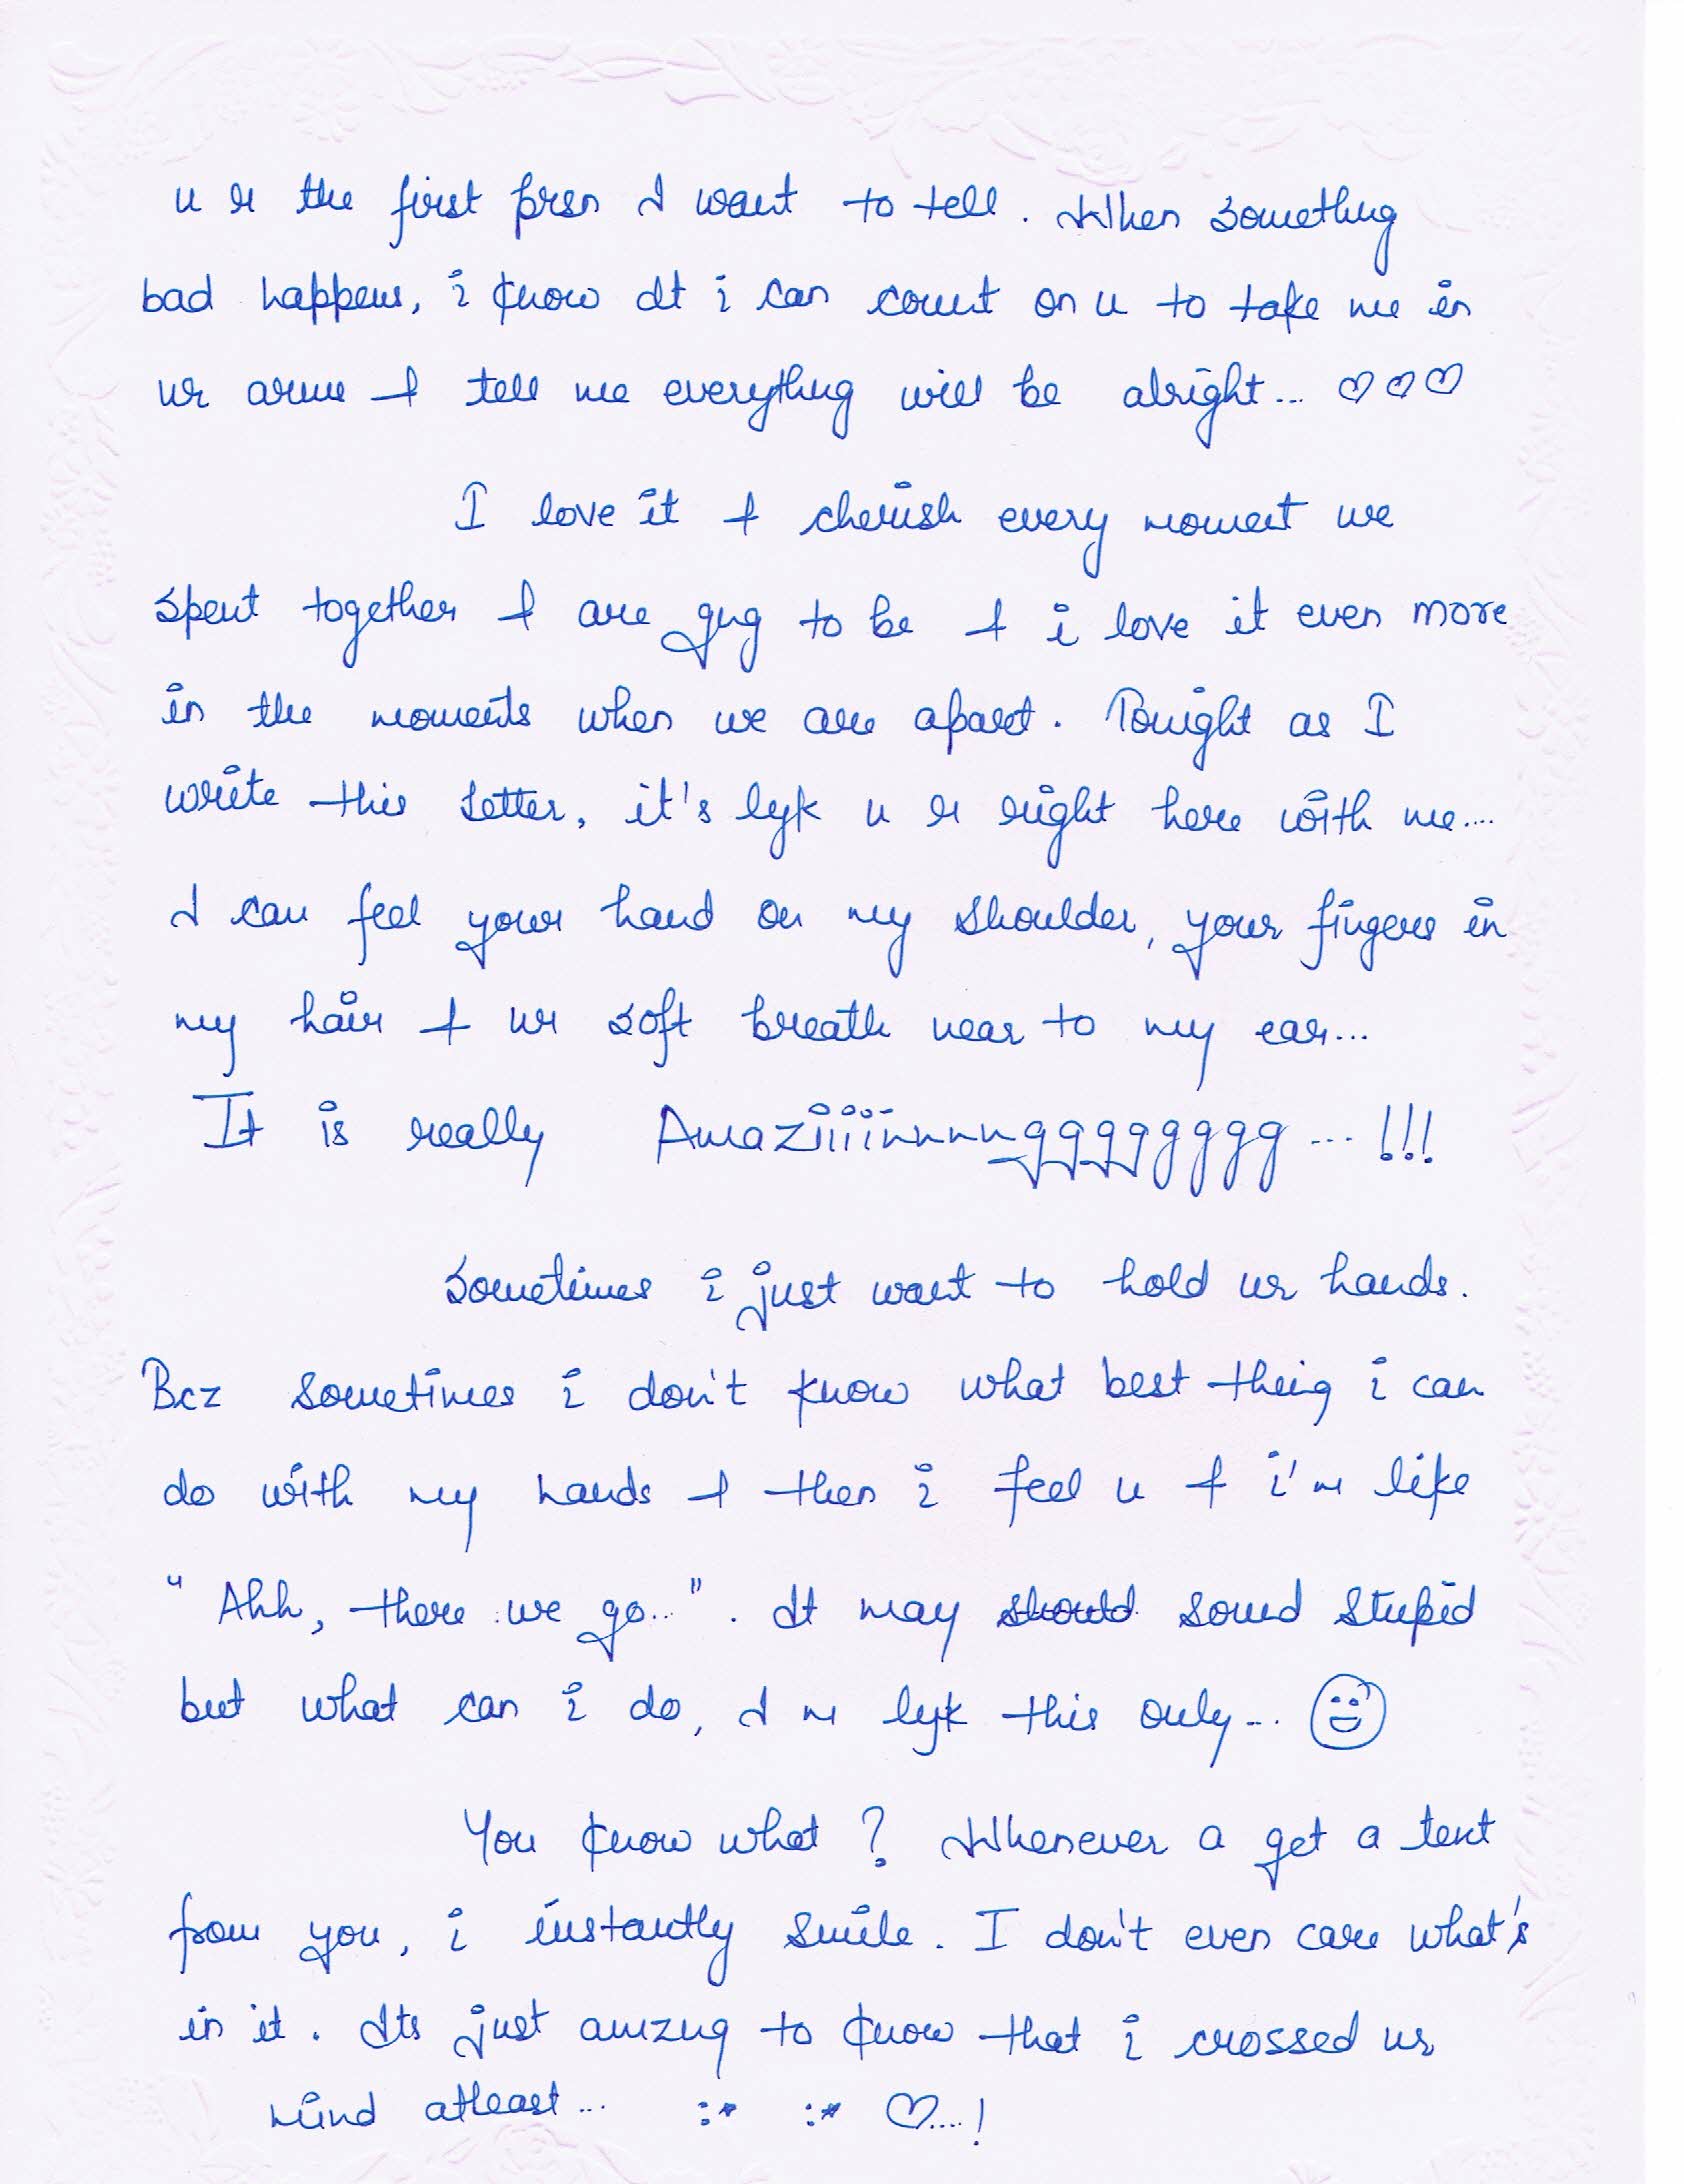 u r the first prsn I want to tell. When something
bad happens, i know dt i can count on u to take me in
ur arms & tell me everythng will be alright... ♡♡♡
I love it & cherish every moment we
spent together & are gng to be & i love it even more
in the moments when we are apart. Tonight as I
write this letter, it's lyk u r right here with me....
I can feel your hand on my shoulder, your fingers in
my hair & ur soft breath near to my ear...
It is really Amaziiiinnnngggggggg ... !!!
Sometimes i just want to hold ur hands.
Bcz sometimes i don't know what best thing i can
do with my hands & then i feel u & i'm like
"Ahh, there we go..". It may should sound stupid
but what can i do, I m lyk this only...
You know what? Whenever a get a text
from you, i instantly smile. I don't even care what's
in it. Its just amzng to know that i crossed ur
mind atleast... :* :* ♡....!